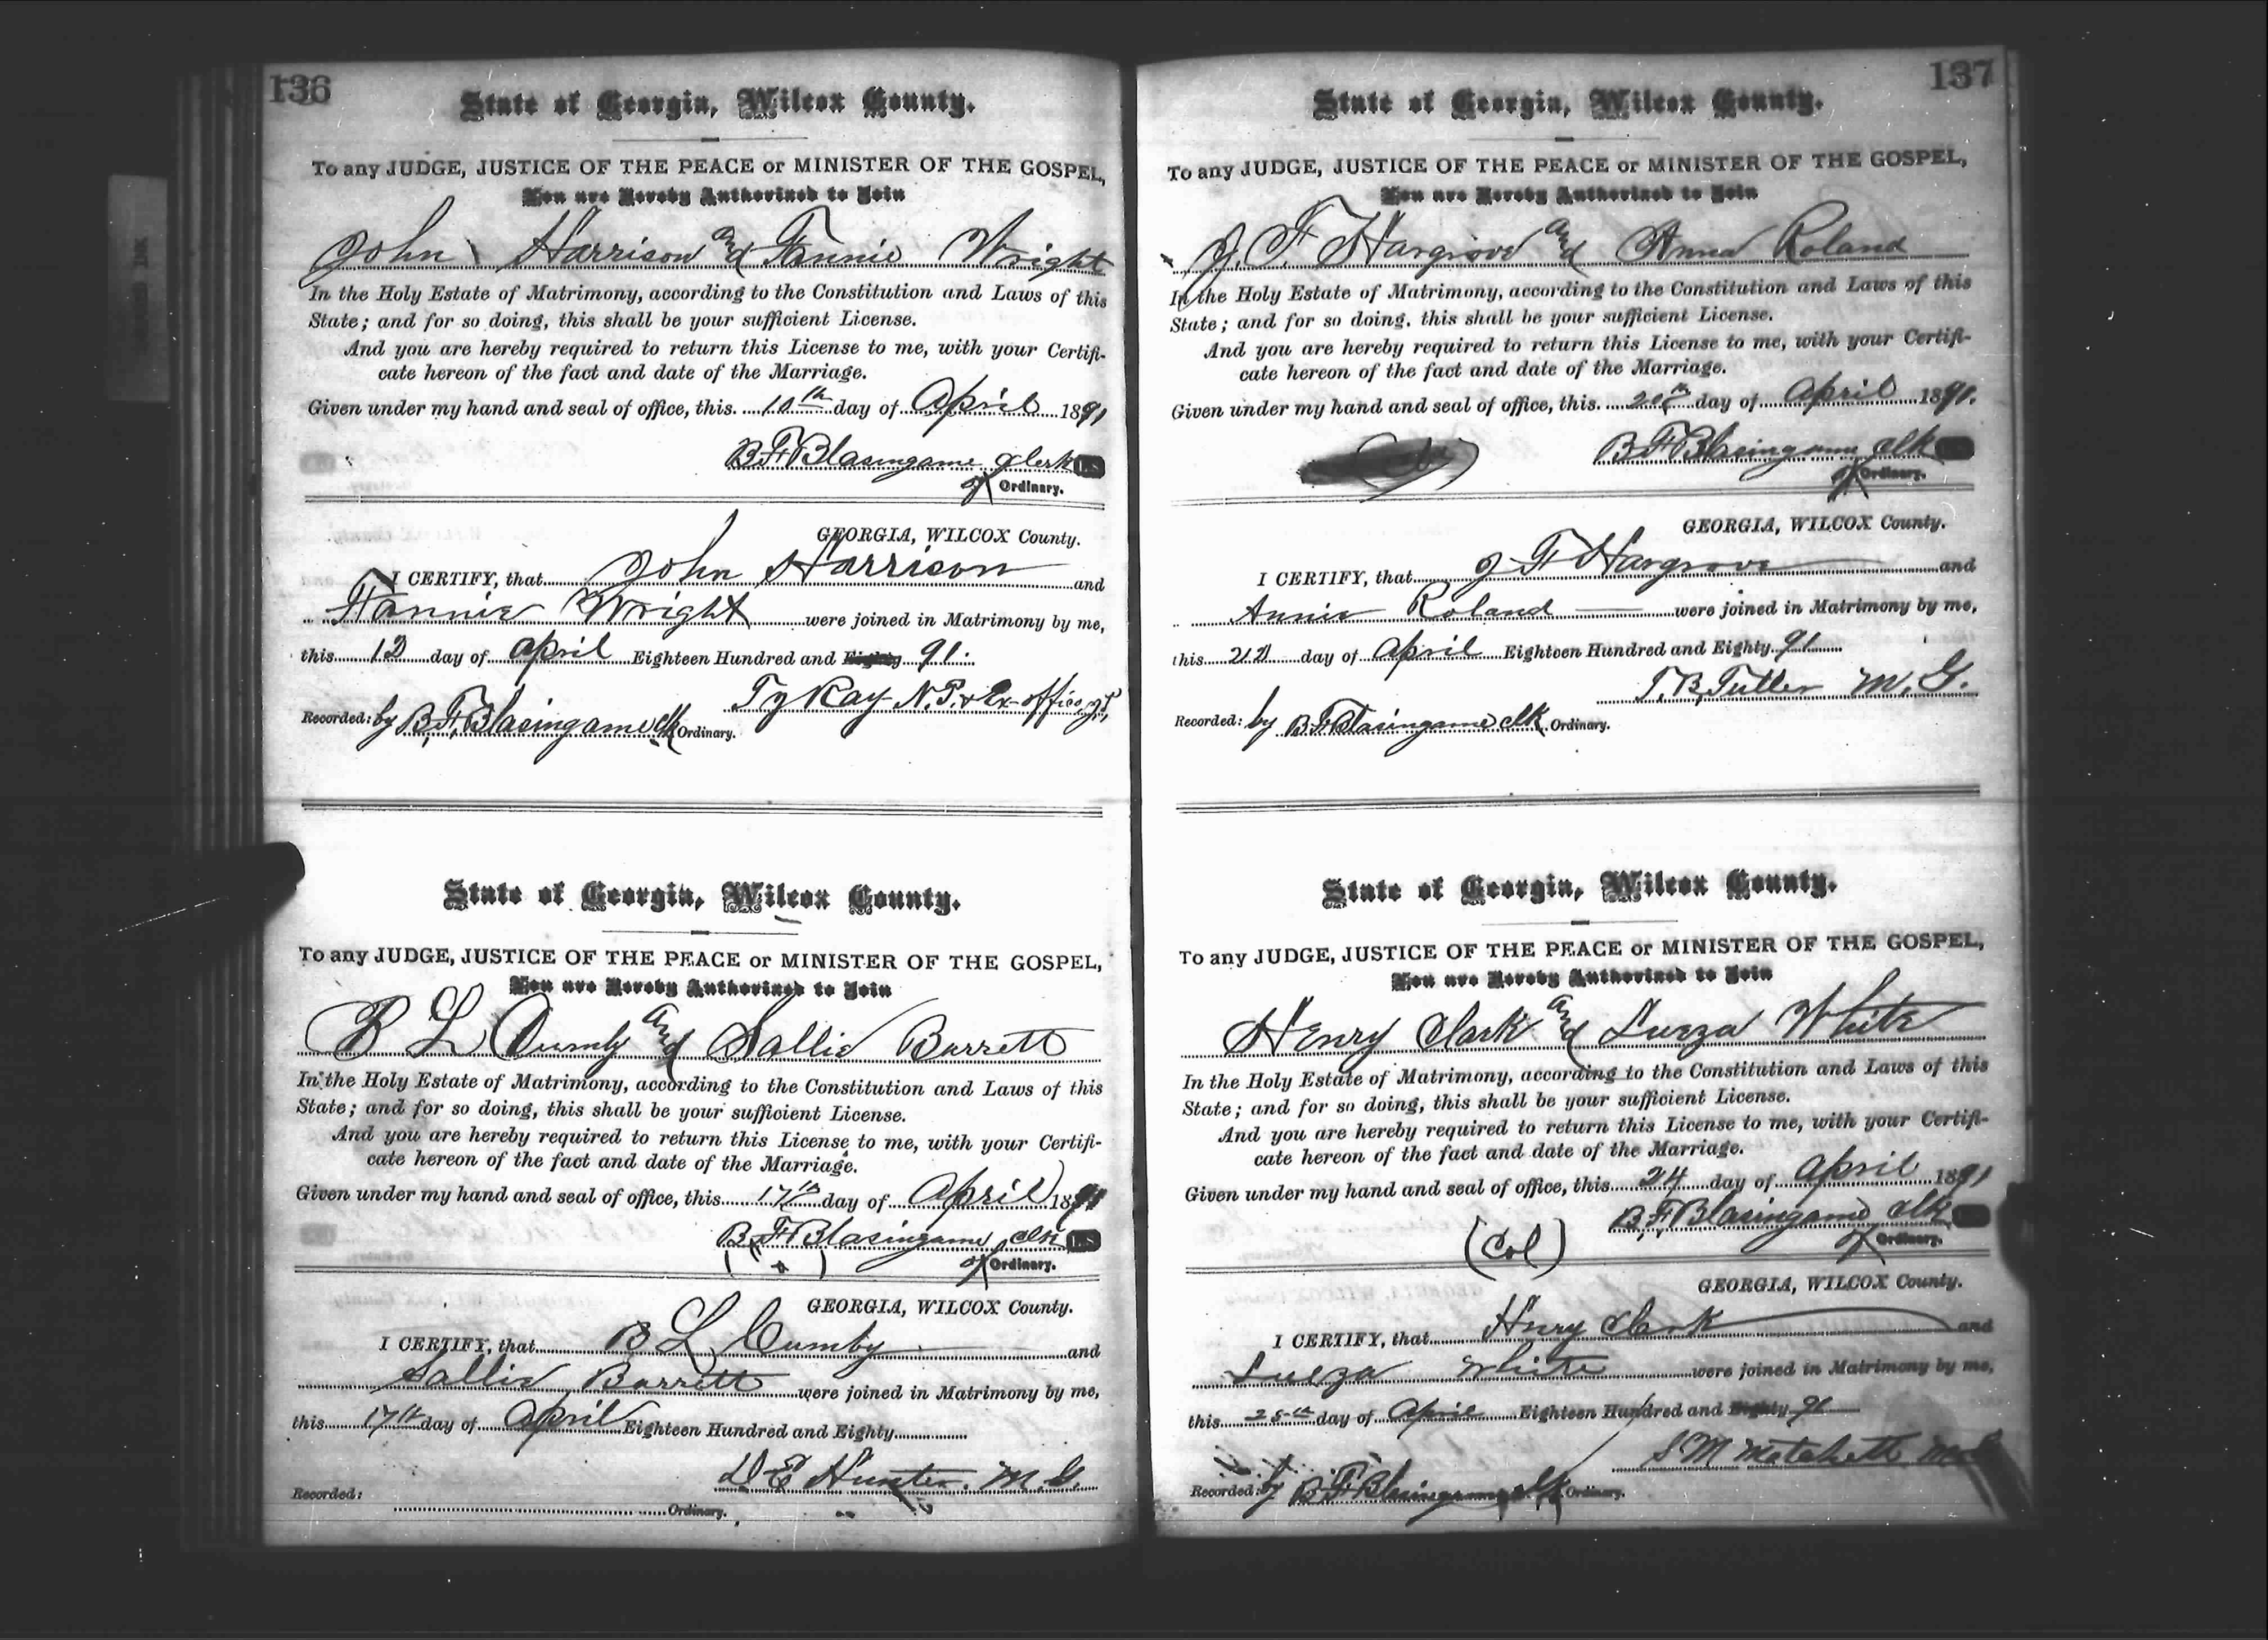 136
State of Georgia, Wilcox County.
To any JUDGE, JUSTICE OF THE PEACE or MINISTER OF THE GOSPEL,
You are Hereby Authorized to Join
John Harrison and Fannie Wright
In the Holy Estate of Matrimony, according to the Constitution and Laws of this
State; and for so doing, this shall be your sufficient License.
And you are hereby required to return this License to me, with your Certifi-
cate hereon of the fact and date of the Marriage.
Given under my hand and seal of office, this 10th day of April 1891
B F Blasingame Clerk L.S.
of Ordinary.
GEORGIA, WILCOX County.
I CERTIFY, that John Harrison and
Fannie Wright were joined in Matrimony by me,
this 12 day of April Eighteen Hundred and Eighty 91.
Ty Ray N.P. & Ex-officio J.P.
Recorded: by B. F. Blasingame clk Ordinary.
State of Georgia, Wilcox County.
To any JUDGE, JUSTICE OF THE PEACE or MINISTER OF THE GOSPEL,
You are Hereby Authorized to Join
B L Cumby and Sallie Barrett
In the Holy Estate of Matrimony, according to the Constitution and Laws of this
State; and for so doing, this shall be your sufficient License.
And you are hereby required to return this License to me, with your Certifi-
cate hereon of the fact and date of the Marriage.
Given under my hand and seal of office, this 17th day of April 1891
B F Blasingame clk L.S.
of Ordinary.
GEORGIA, WILCOX County.
I CERTIFY, that B L Cumby and
Sallie Barrett were joined in Matrimony by me,
this 17th day of April Eighteen Hundred and Eighty
D E Hunter. M. G.
Recorded: Ordinary.
137
State of Georgia, Wilcox County.
To any JUDGE, JUSTICE OF THE PEACE or MINISTER OF THE GOSPEL,
You are Hereby Authorized to Join
J. F. Hargrove and Anna Roland
In the Holy Estate of Matrimony, according to the Constitution and Laws of this
State; and for so doing, this shall be your sufficient License.
And you are hereby required to return this License to me, with your Certifi-
cate hereon of the fact and date of the Marriage.
Given under my hand and seal of office, this 20th day of April 1891.
B F Blasingame clk
of Ordinary.
GEORGIA, WILCOX County.
I CERTIFY, that J F Hargrove and
Annie Roland were joined in Matrimony by me,
this 22 day of April Eighteen Hundred and Eighty 91
T. B. Tutler M. G.
Recorded: by B F Blasingame clk Ordinary.
State of Georgia, Wilcox County.
To any JUDGE, JUSTICE OF THE PEACE or MINISTER OF THE GOSPEL,
You are Hereby Authorized to Join
Henry Clark and Lueza White
In the Holy Estate of Matrimony, according to the Constitution and Laws of this
State; and for so doing, this shall be your sufficient License.
And you are hereby required to return this License to me, with your Certifi-
cate hereon of the fact and date of the Marriage.
Given under my hand and seal of office, this 24 day of April 1891
B. F. Blasingame clk
(Col) of Ordinary.
GEORGIA, WILCOX County.
I CERTIFY, that Henry Clark and
Lueza White were joined in Matrimony by me,
this 25th day of April Eighteen Hundred and Eighty 91
S M Matchett
Recorded: by B F Blasingame clk Ordinary.